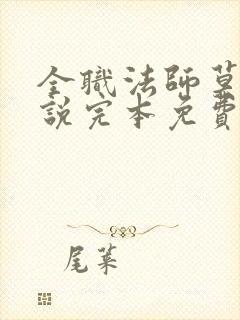 全職法師莫
說完本免費
尾菜